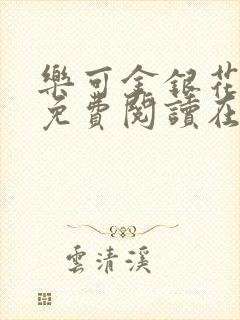 樂可金銀花
免費閱讀在
雲清溪